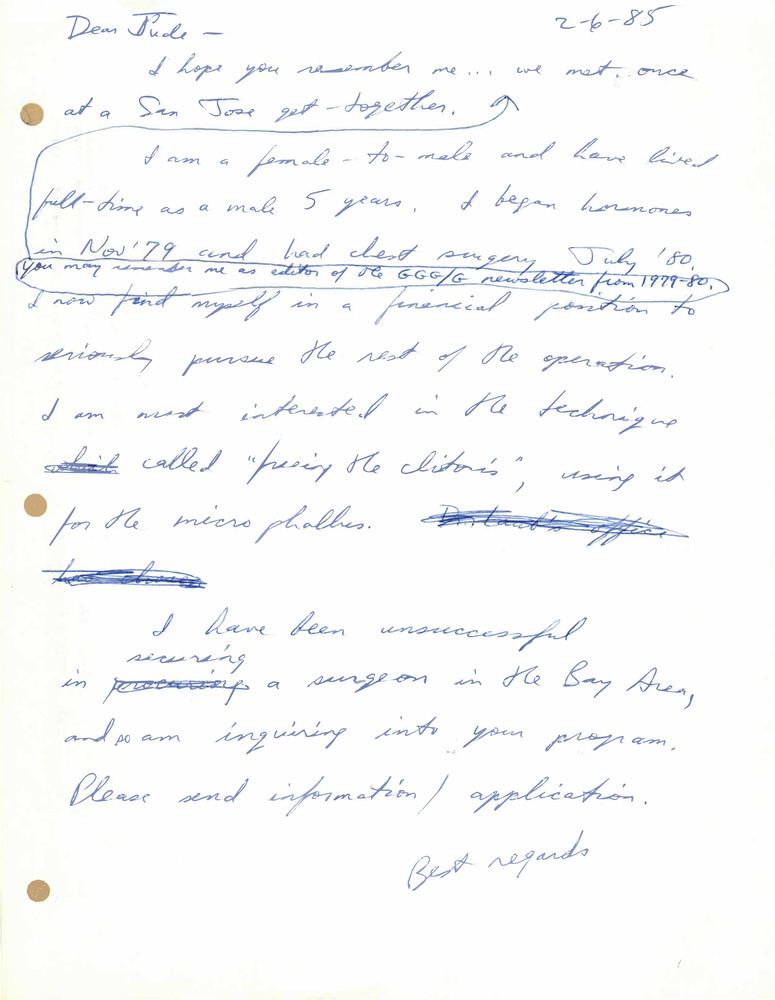 2-6-85
Dear Jude —
I hope you resember me... we met once
at a San Jose get-together.
I am a female-to-male and have lived
full-time as a male 5 years. I began hormones
in Nov '79 and had chest surgery July '80.
you may remember me as editor of the GGG/G newsletter from 1979-80.
I now find myself in a financial position to
seriously pursue the rest of the operation.
I am most interested in the technique
called "freeing the clitoris", using it
for the micro phallus.
I have been unsuccessful
securing
in procuring a surgeon in the Bay Area,
and so am inquiring into your program.
Please send information / application.
Best regards